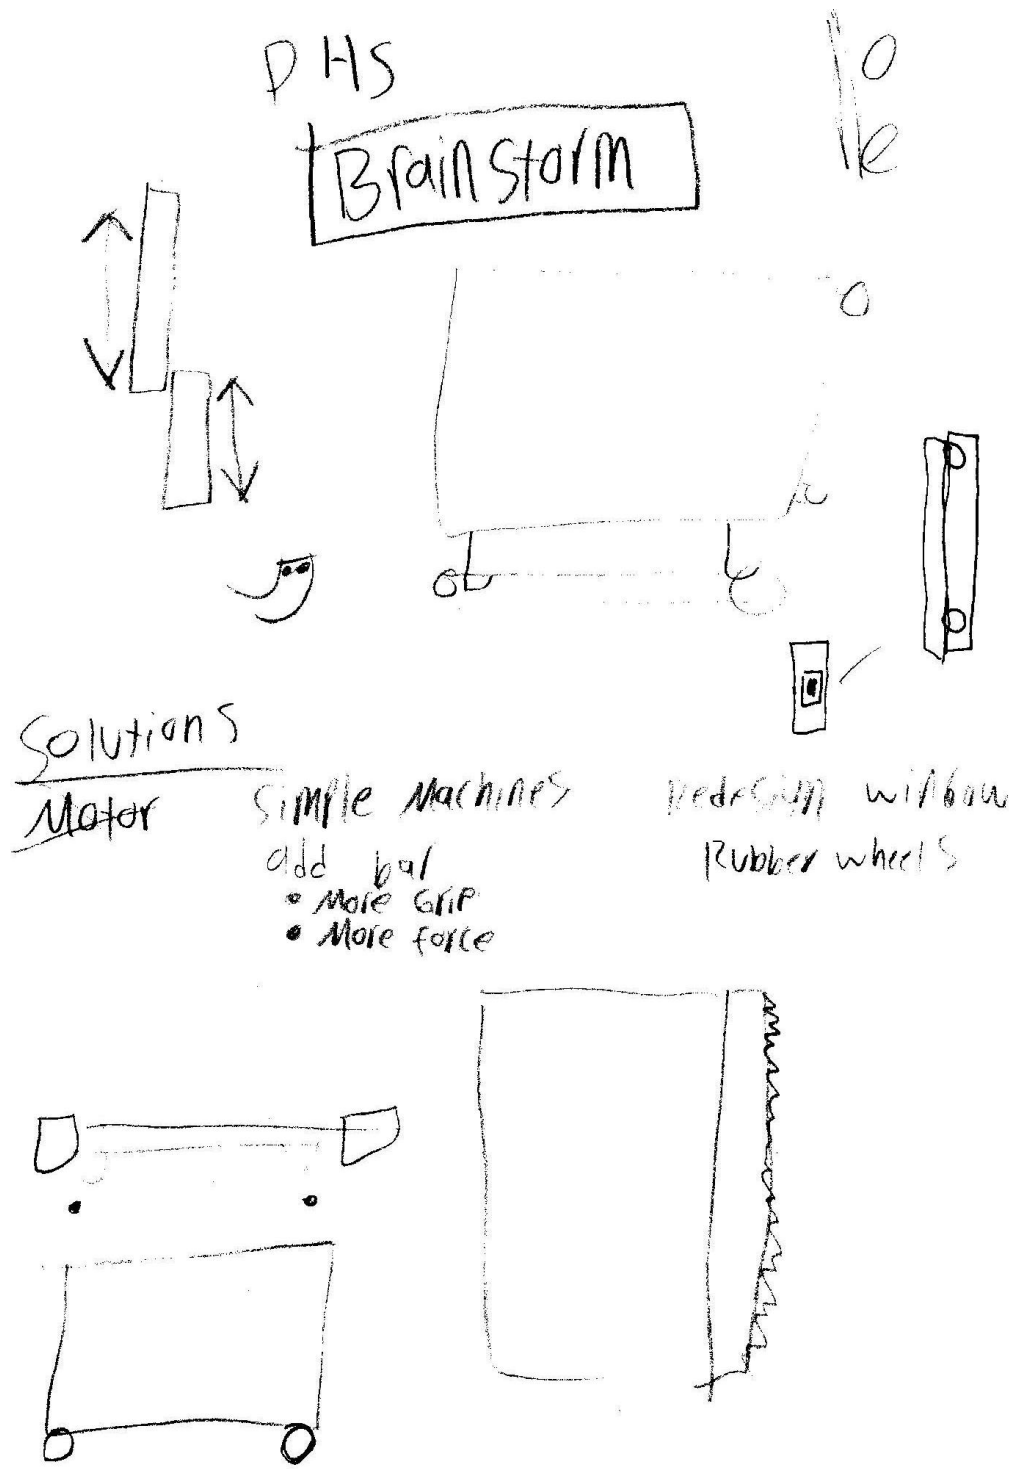 DHS
Brainstorm
Solutions
Motor
Simple Machines
add bar
• More Grip
• More force
Redesign window
Rubber wheels